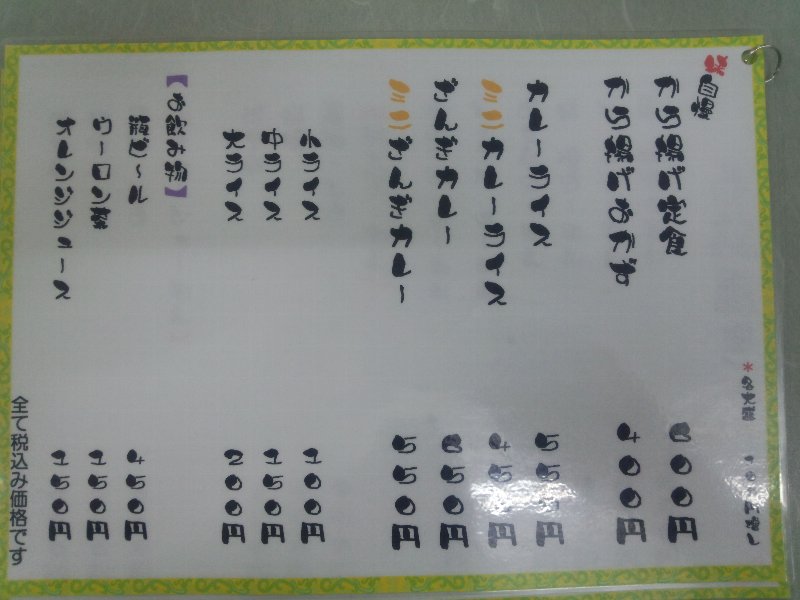 自慢
から揚げ定食 800円
から揚げおかず 400円
カレーライス 550円
ミニカレーライス 450円
ざんぎカレー 850円
ミニざんぎカレー 550円
小ライス 100円
中ライス 150円
大ライス 200円
【お飲み物】
瓶ビール 450円
ウーロン茶 150円
オレンジジュース 150円
全て税込み価格です